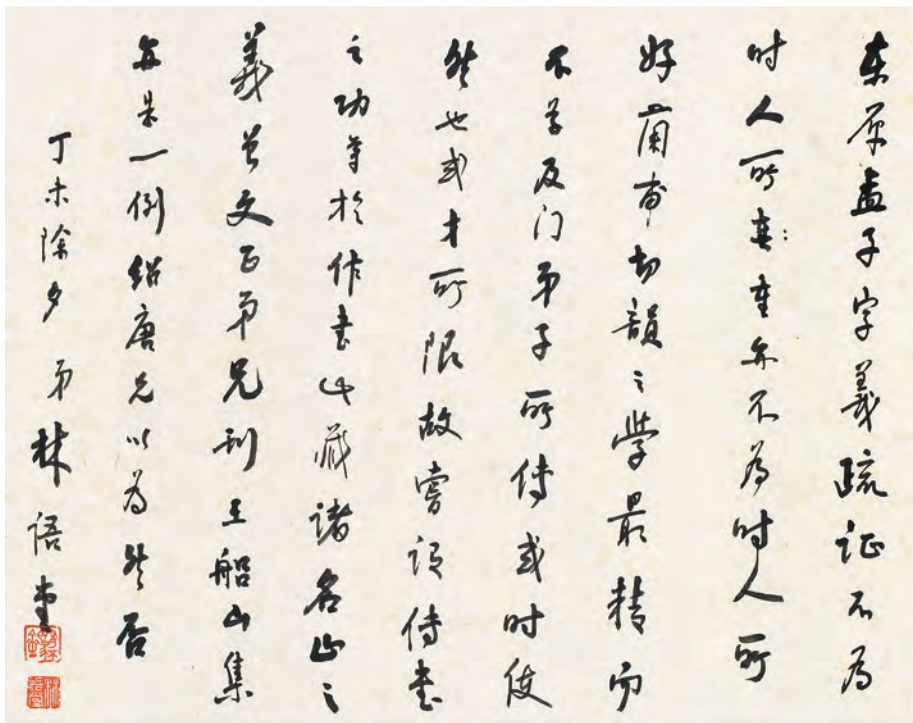 東原孟子字義疏证不為
时人所重亦不為时人所
好蘭甫切韻之學最精而
不及门弟子所傳或时使
然也或才所限故嘗谈傳書
之功等於作書也藏諸名山之
義曾文正弟兄刊王船山集
亦是一例紹唐兄以為然否
丁未除夕 弟林語堂